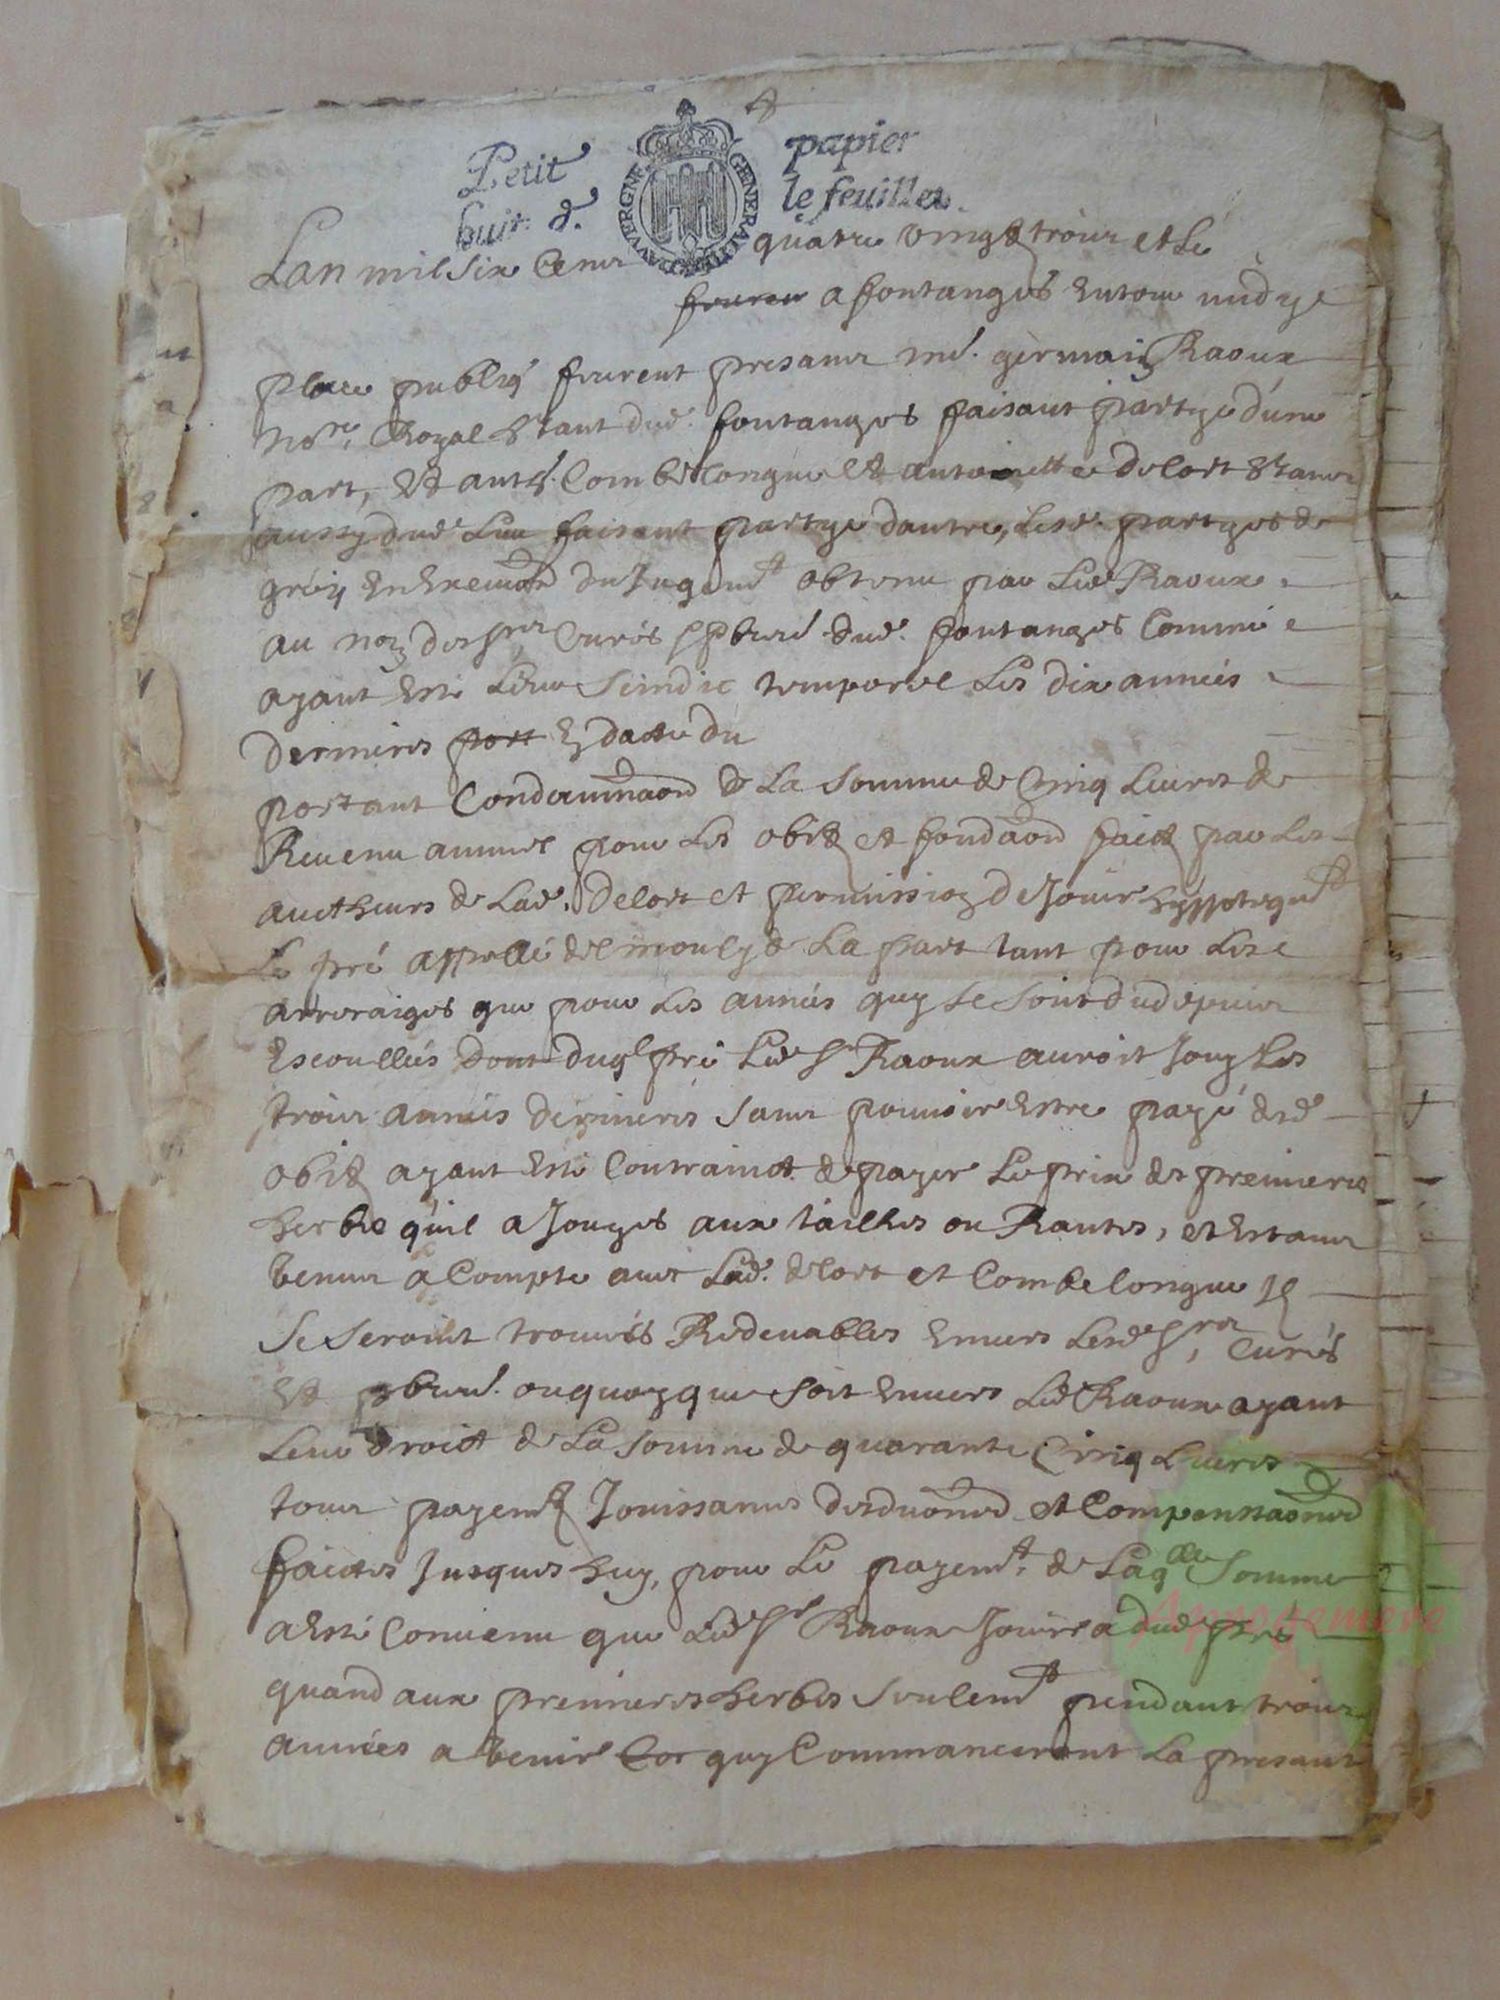 Petit papier
huit d. le feuillet.
GENERALITE D'AUVERGNE
Lan mil six Cens quatre vingt trois et le
a fontanges en tour midy e
place publiq furent presans me. germain Raoux
nore. Royal htant dud. fontanges faisant partye dune
part, et anth. Combelongue et antoinette delort htans
aussy dud lieu faisant partye dautre, lesd. partyes de
gré en du Jugemt obtenu par Led Raoux
au nom des srs Curés dud. fontanges Comme
ayant esté Leur Scindic temporel Les dix années
dernieres port en datte du
portant Condamnaon de La somme de Cinq Livres de
Revenu annuel pour Les obitz et fondaon faitz par Les
autheurs de Lad. Delort et permission de Jouir hyppotequemt
Le pré appellé del mouly de La part tant pour Les
arreraiges que pour Les années quy se sont dud depuis
Escoullées Dont duql pré Led Sr Raoux auroit Jouy Les
trois années dernieres sans pouvoir estre payé desd
obitz ayant esté Contrainct de payer Le prix des premieres
herbe quil a Jouyes aux tailhes ou Rantes, et estans
venus a Compte avec Lad. delort et Combelongue Il
se seroint trouvés Redevables Envers Lesd Srs, Curés
et ou quoy que soit Envers Led Raoux ayant
Leur droict de La somme de quarante Cinq Livres
tous payemtz Jouissances desduonsd et Compensaonsd
faictes Jusques huy, pour Le payemt. de Laqlle somme
a esté Convenu que Led Sr Raoux Jouira dud pré
quand aux premieres herbes seulemt pendant trois
années a venir quy Commanceront La presant
Approgemere